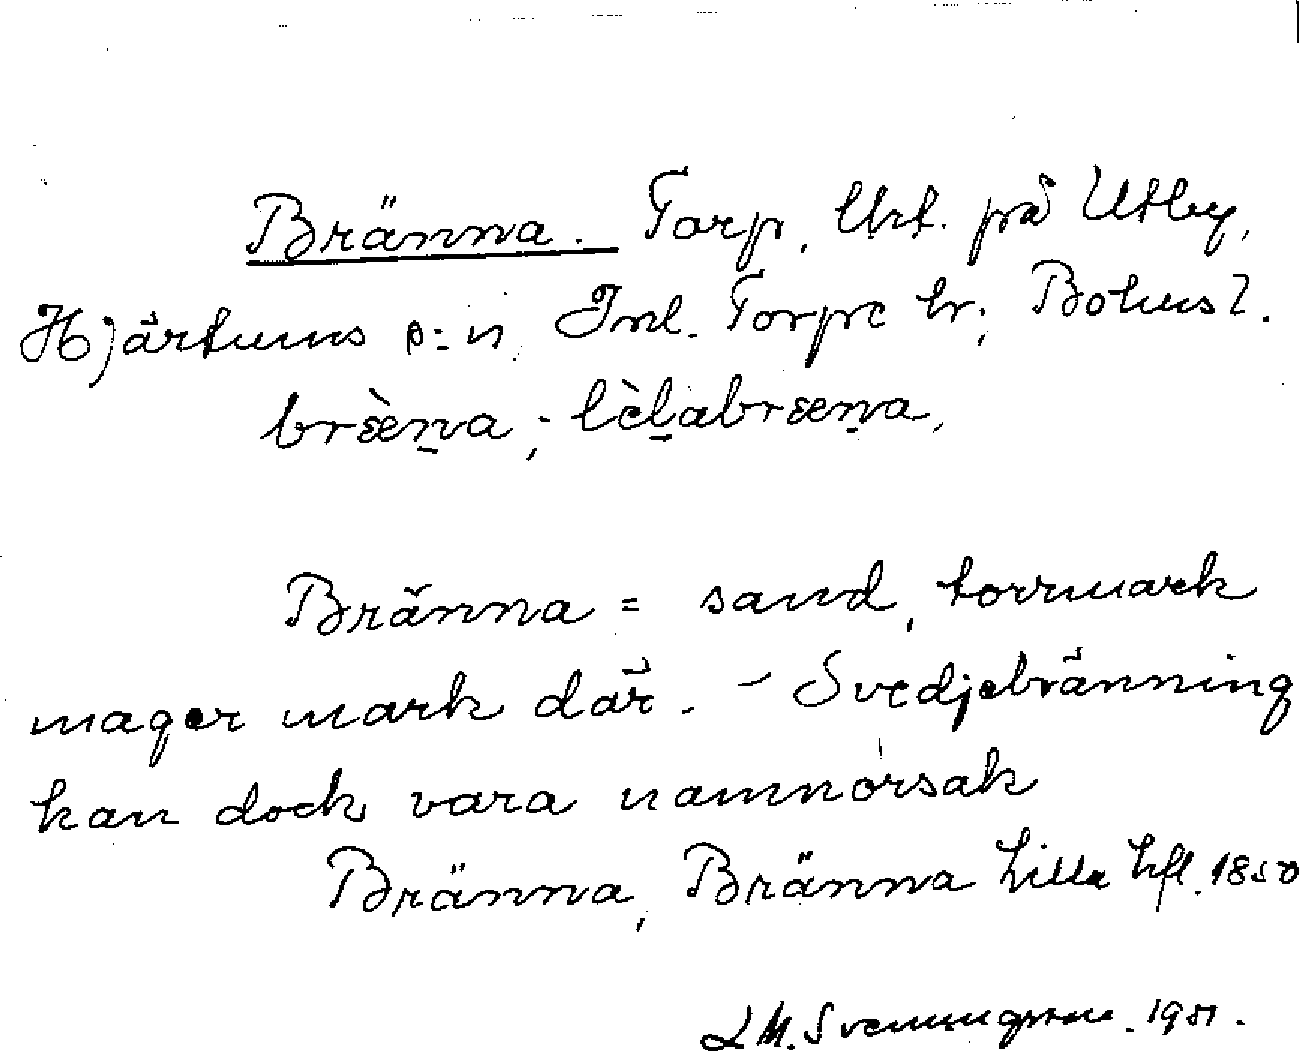 Bränna. Torp, Urt. på Utby,
Hjärtums s:n, Inl. Torpe hr; Bohusl.
bræ̀ṉa, ; lèḻabræṉa,
Bränna = sand, torrmark
mager mark där. - Svedjebränning
kan dock vara namnorsak
Bränna, Bränna Lilla hfl. 1850
L M. Svenungsson. 1951.